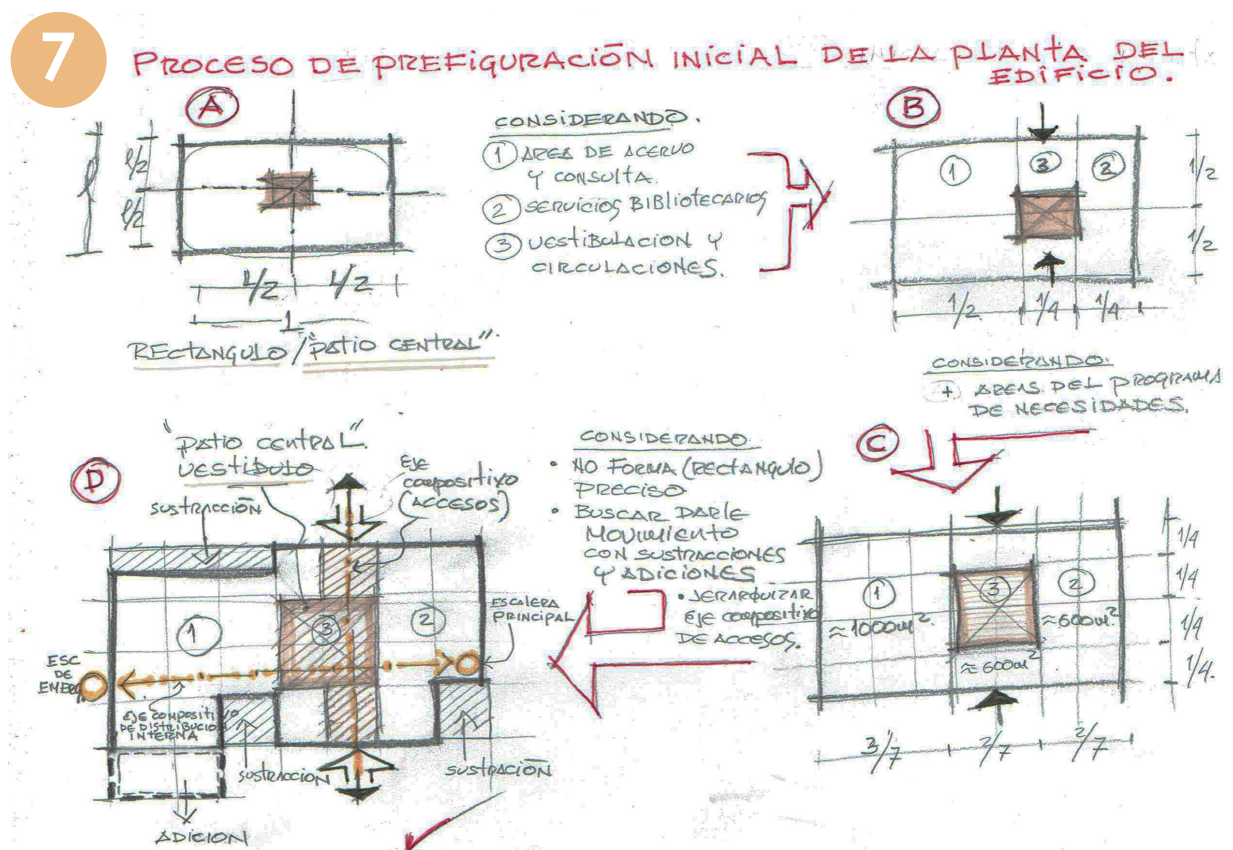 7
PROCESO DE PREFIGURACIÓN INICIAL DE LA PLANTA DEL
EDIFICIO.
A
l
l/2
l/2
L/2 L/2
L
RECTANGULO/"PATIO CENTRAL".
CONSIDERANDO.
1 AREA DE ACERVO
Y CONSULTA.
2 SERVICIOS BIBLIOTECARIOS
3 VESTIBULACION Y
CIRCULACIONES.
B
1 3 2
1/2
1/2
1/2 1/4 1/4
CONSIDERANDO.
+ AREAS DEL PROGRAMA
DE NECESIDADES.
C
1 3 2
≈1000m² ≈600m²
≈600m²
1/4
1/4
1/4
1/4.
3/7 2/7 2/7
CONSIDERANDO
• NO FORMA (RECTANGULO)
PRECISO
• BUSCAR DARLE
MOVIMIENTO
CON SUSTRACCIONES
Y ADICIONES
• JERARQUIZAR
EJE COMPOSITIVO
DE ACCESOS.
D
"PATIO CENTRAL"
VESTIBULO
SUSTRACCIÓN
EJE
COMPOSITIVO
(ACCESOS)
1 3 2
ESCALERA
PRINCIPAL
ESC
DE
EMERG
EJE COMPOSITIVO
DE DISTRIBUCION
INTERNA
SUSTRACCION
SUSTRACIÓN
ADICION